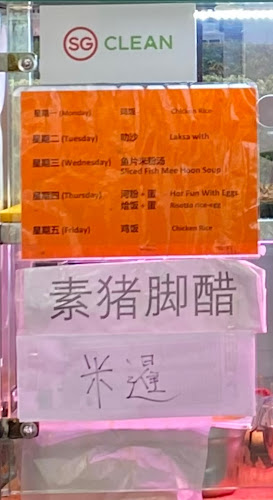 SG CLEAN
星期一 (Monday) 鸡饭 Chicken Rice
星期二 (Tuesday) 叻沙 Laksa with
星期三 (Wednesday) 鱼片米粉汤
Sliced Fish Mee Hoon Soup
星期四 (Thursday) 河粉 + 蛋 Hor Fun With Eggs
烩饭 + 蛋
星期五 (Friday) 鸡饭 Chicken Rice
素猪脚醋
米暹